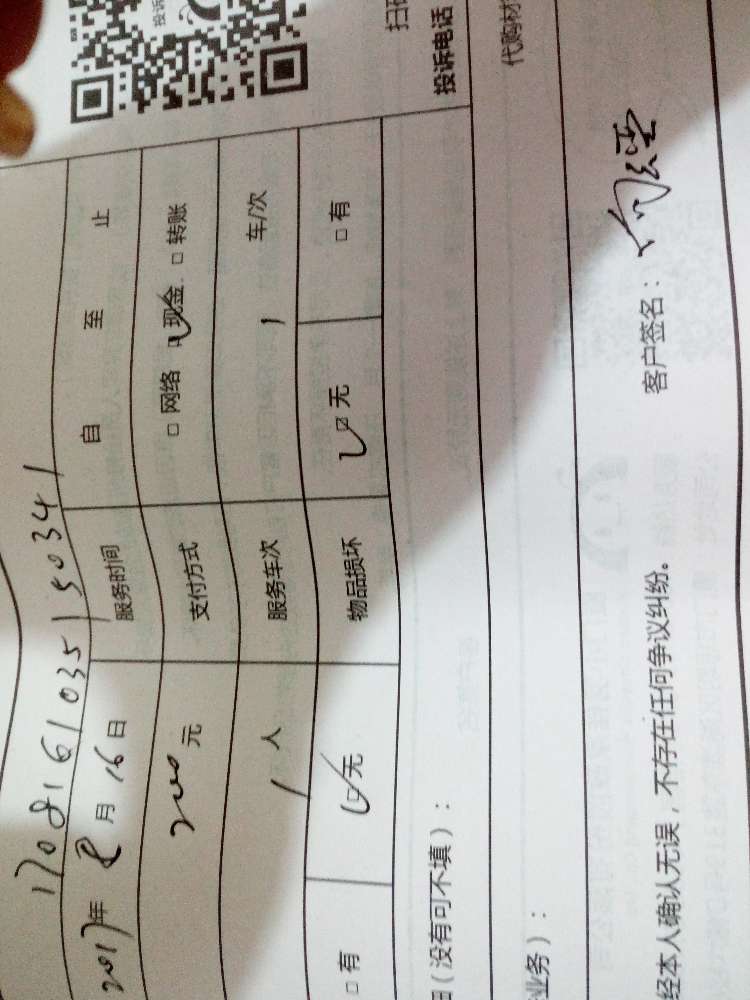 投诉
扫码
投诉电话
代购材
17081610351150341
2017年 8月 16日 服务时间 自 至 止
2000元 支付方式 □网络 ☑现金 □转账
1人 服务车次 1 车/次
□有 ☑无 物品损坏 ☑无 □有
(没有可不填):
业务):
经本人确认无误,不存在任何争议纠纷。 客户签名: